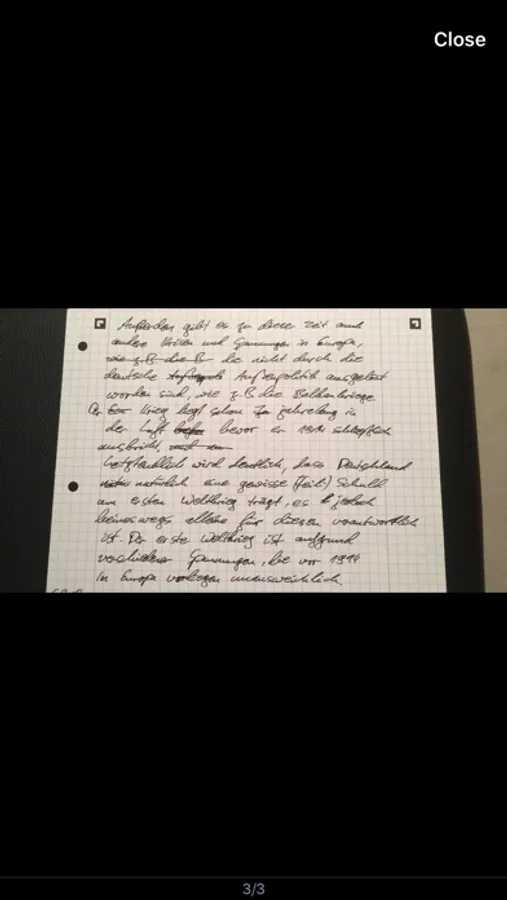 Close
Außerdem gibt es zu dieser Zeit auch
andere Krisen und Spannungen in Europa,
wie z.B. die B die nicht durch die
deutsche Außenpolitik ausgelöst
worden sind, wie z.B die Balkankriege
Der Krieg liegt schon jahrelang in
der Luft bevor er 1914 schließlich
ausbricht.
Letztendlich wird deutlich, dass Deutschland
natürlich eine gewisse (Teil) Schuld
am ersten Weltkrieg trägt, es jedoch
keineswegs alleine für diesen verantwortlich
ist. Der erste Weltkrieg ist aufgrund
verschiedener Spannungen, die vor 1914
in Europa vorliegen unausweichlich.
3/3